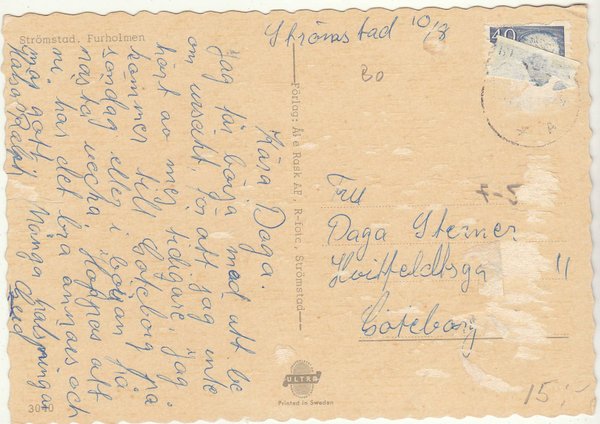 Strömstad. Furholmen
Strömstad 10/8
40
30
Kära Daga.
Jag får börja med att be
om ursäkt, för att jag inte
hört av mej tidigare. Jag
kommer till Göteborg på
söndag eller i början på
nästa vecka. Hoppas att
ni har det bra annars och
mår gott.
Många hälsningar
Förlag: Rask AF, R-foto, Strömstad
Fru
Daga Sterner
Hvitfeldtsga 11
Göteborg
ULTRA
Printed in Sweden
3040
15:-